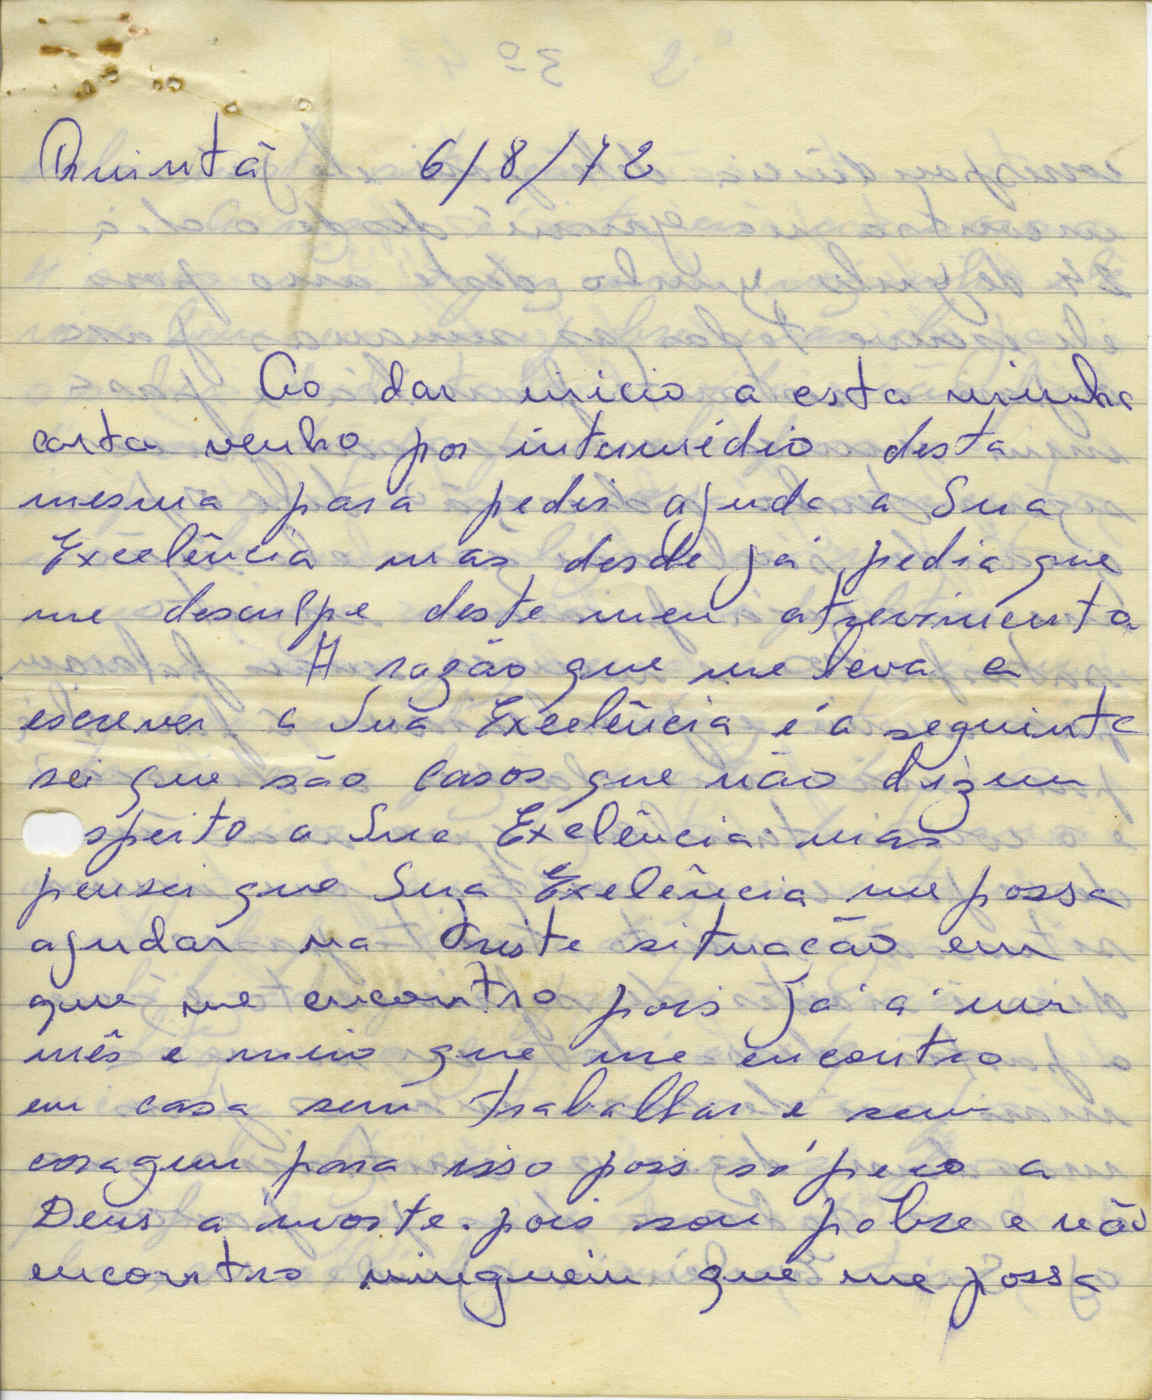 Quintã 6/8/72
Ao dar inicio a esta minha
carta venho por intermédio desta
mesma para pedir ajuda a Sua
Excelência mas desde já pedia que
me desculpe deste meu atrevimento
A razão que me leva a
escrever a Sua Excelência é a seguinte
sei que são casos que não dizem
speito a Sua Exelência mas
pensei que Sua Exelência me possa
ajudar na triste situação em
que me encontro pois já á um
mês e meio que me encontro
em casa sem trabalhar e sem
coragem para isso pois só peco a
Deus a morte. pois sou pobre e não
encontro ninguém que me possa